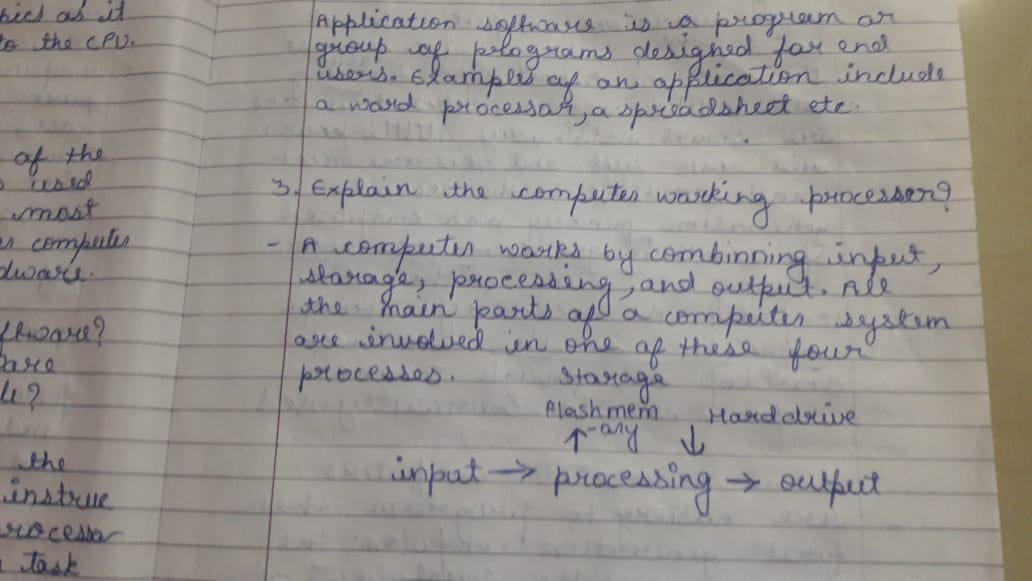 hics as it
to the CPU.
of the
used
most
computer
dware.
ftware?
are
le?
the
instruc
rocesso
task
Application software is a program or
group of programs designed for end
users. Examples of an application include
a word processor, a spreadsheet etc.
3. Explain the computer working processer?
- A computer works by combinning input,
storage, processing, and output. All
the main parts of a computer system
are involved in one of these four
processes.
Storage
Flashmem Harddrive
↑ -ary ↓
input → processing → output